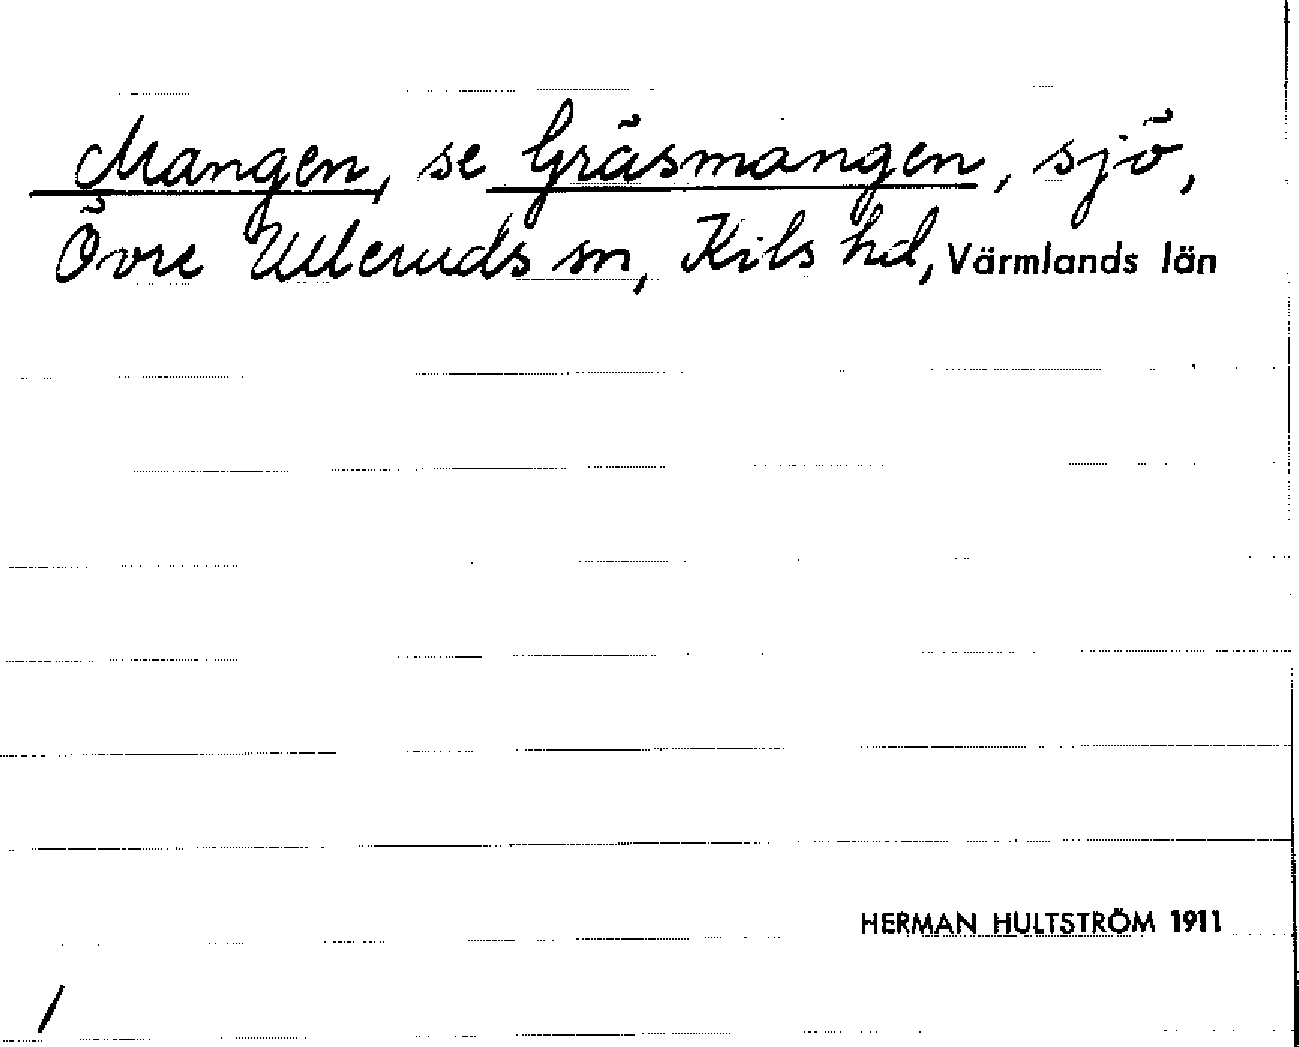 Mangen, se Gräsmangen, sjö,
Övre Ulleruds sn, Kils hd, Värmlands län
HERMAN HULTSTRÖM 1911
/